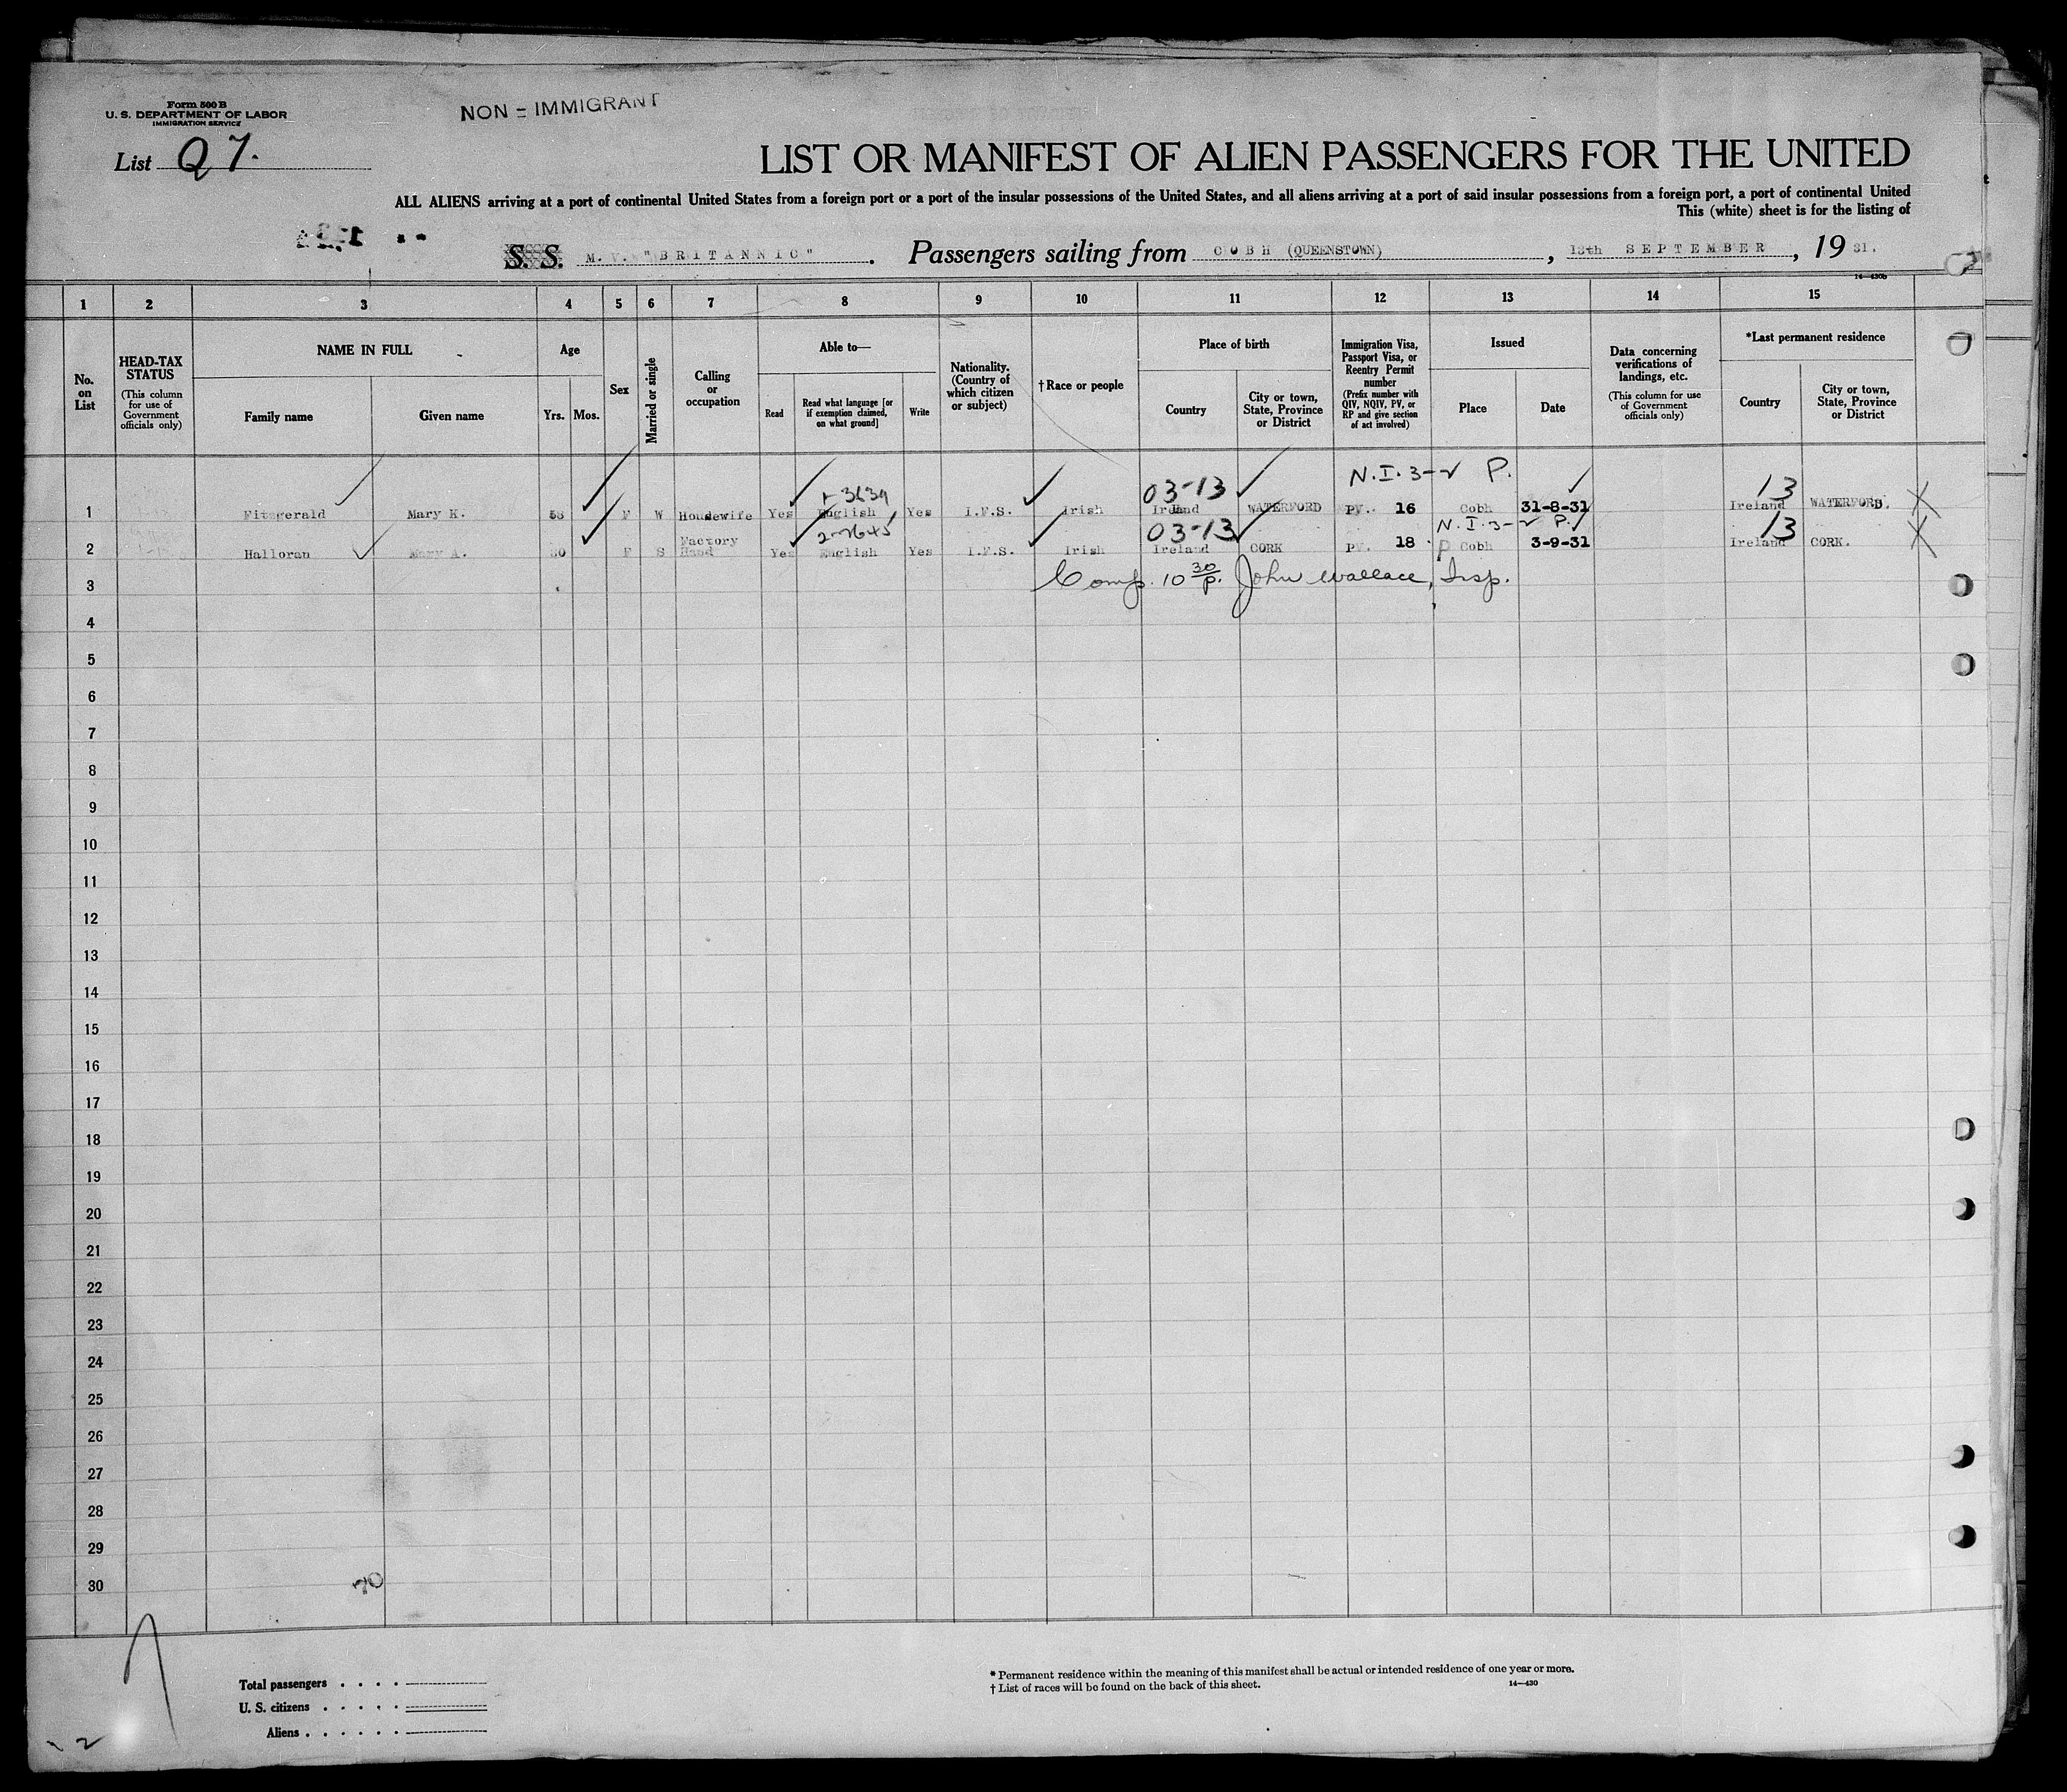 Form 500 B
U. S. DEPARTMENT OF LABOR
IMMIGRATION SERVICE
NON = IMMIGRANT
List Q 7.
LIST OR MANIFEST OF ALIEN PASSENGERS FOR THE UNITED
ALL ALIENS arriving at a port of continental United States from a foreign port or a port of the insular possessions of the United States, and all aliens arriving at a port of said insular possessions from a foreign port, a port of continental United
This (white) sheet is for the listing of
S. S. M. V. "BRITANNIC" . Passengers sailing from COBH (QUEENSTOWN) , 13th SEPTEMBER , 19 31.
14—430b
1 2 3 4 5 6 7 8 9 10 11 12 13 14 15
No. on List
HEAD-TAX STATUS
(This column for use of Government officials only)
NAME IN FULL
Family name
Given name
Age
Yrs.
Mos.
Sex
Married or single
Calling or occupation
Able to—
Read
Read what language [or if exemption claimed, on what ground]
Write
Nationality. (Country of which citizen or subject)
† Race or people
Place of birth
Country
City or town, State, Province or District
Immigration Visa, Passport Visa, or Reentry Permit number
(Prefix number with QIV, NQIV, PV, or RP and give section of act involved)
Issued
Place
Date
Data concerning verifications of landings, etc.
(This column for use of Government officials only)
*Last permanent residence
Country
City or town, State, Province or District
03-13 N.I. 3-2 P. 13
1 Fitzgerald Mary K. F W Housewife Yes English Yes I.F.S. Irish Ireland WATERFORD PV. 16 Cobh 31-8-31 Ireland WATERFORD. X
03-13 N.I. 3-2 P. 13
2 Halloran Mary A. 30 F S Factory Hand Yes English Yes I.F.S. Irish Ireland CORK PV. 18 Cobh 3-9-31 Ireland CORK. X
3 Comp. 10 30/p. John Wallace, Insp.
4
5
6
7
8
9
10
11
12
13
14
15
16
17
18
19
20
21
22
23
24
25
26
27
28
29
30
Total passengers . . . .
U. S. citizens . . . . .
Aliens . . . . . .
* Permanent residence within the meaning of this manifest shall be actual or intended residence of one year or more.
† List of races will be found on the back of this sheet.
14—430
2